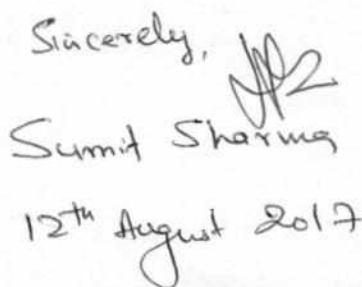 Sincerely,
Sumit Sharma
12th August 2017